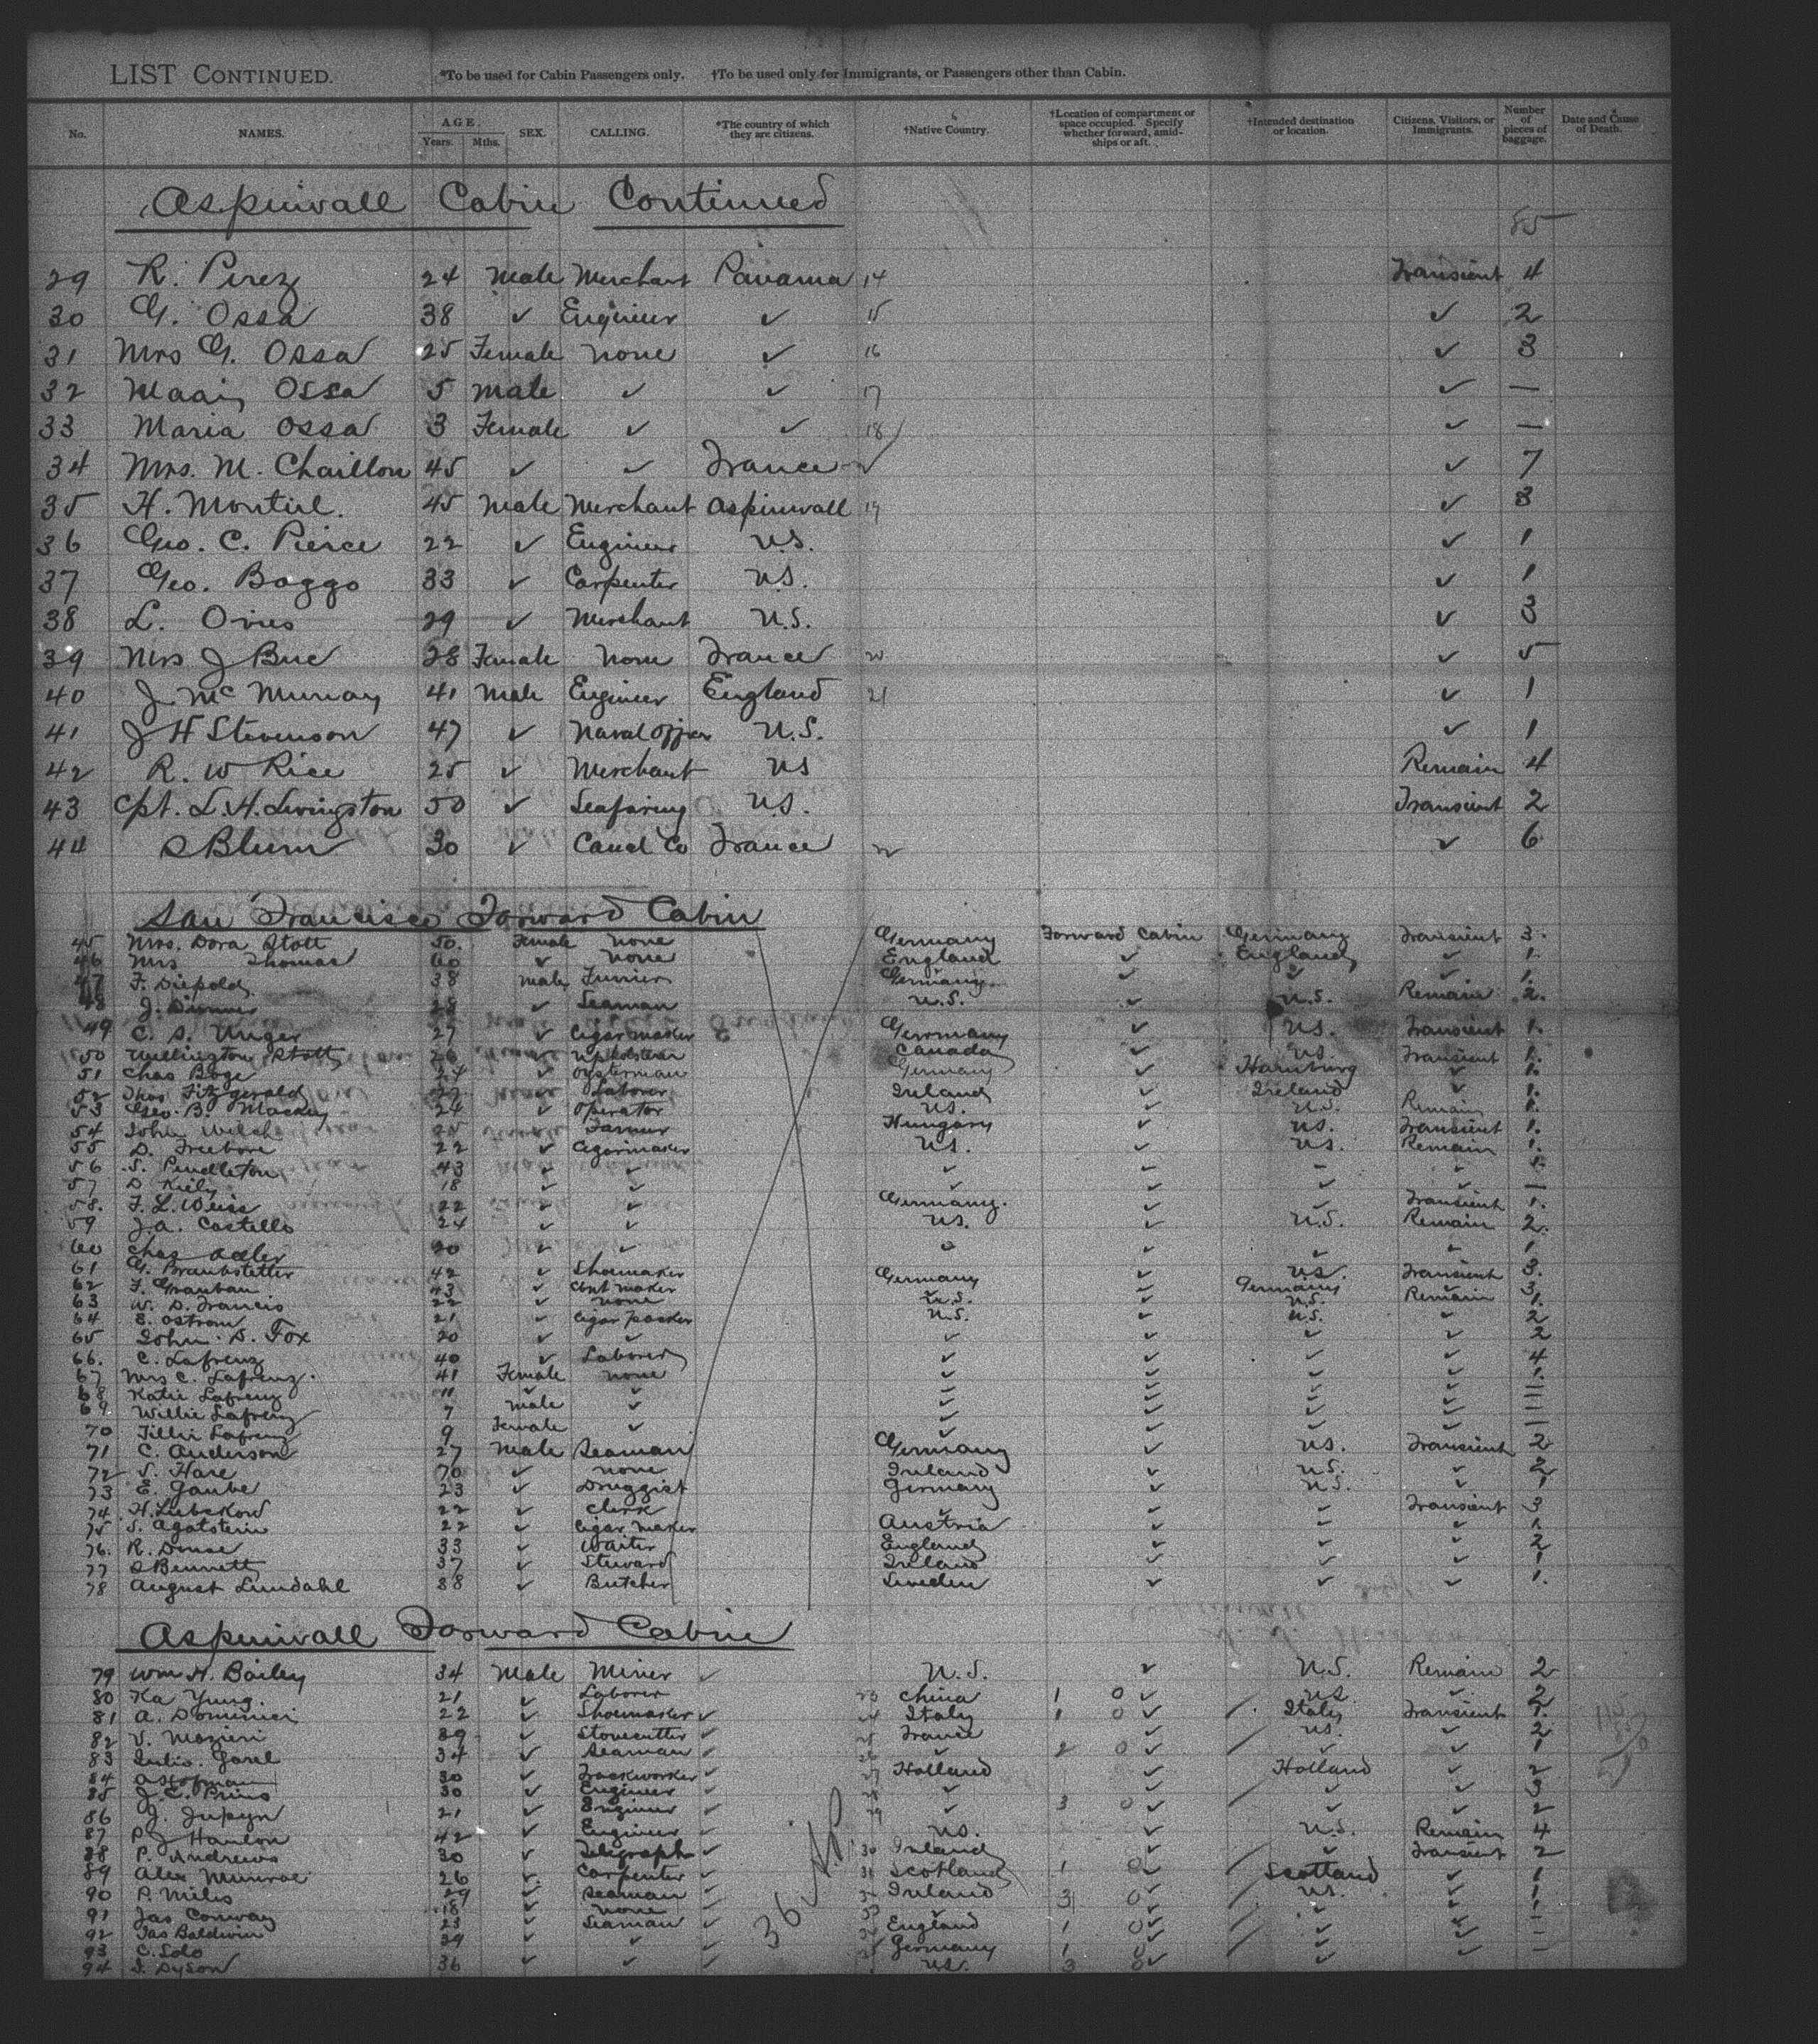 LIST CONTINUED. *To be used for Cabin Passengers only. †To be used only for Immigrants, or Passengers other than Cabin.
No. NAMES. AGE. Years. Mths. SEX. CALLING. *The country of which they are citizens. †Native Country. †Location of compartment or space occupied. Specify whether forward, amidships or aft. †Intended destination or location. Citizens, Visitors, or Immigrants. Number of pieces of baggage. Date and Cause of Death.
Aspinwall Cabin Continued
85
29 R. Perez 24 Male Merchant Panama 14 Transient 4
30 G. Ossa 38 ✓ Engineer ✓ 15 ✓ 2
31 Mrs G. Ossa 25 Female none ✓ 16 ✓ 3
32 Ossa 5 male ✓ ✓ 17 ✓ —
33 Maria Ossa 3 Female ✓ ✓ 18 ✓ —
34 Mrs. M. Chaillon 45 ✓ ✓ France ✓ ✓ 7
35 H. Montiel. 45 Male Merchant Aspinwall 19 ✓ 3
36 Geo. C. Pierce 22 ✓ Engineer U.S. ✓ 1
37 Geo. Boggo 33 ✓ Carpenter U.S. ✓ 1
38 L. Ories 29 ✓ Merchant U.S. ✓ 3
39 Mrs J Buc 28 Female None France 20 ✓ 5
40 J McMurray 41 Male Engineer England 21 ✓ 1
41 J H Stevenson 47 ✓ Naval Officer U.S. ✓ 1
42 R. W Rice 25 ✓ Merchant US Remain 4
43 Cpt. L. H. Livingston 50 ✓ Seafaring U.S. Transient 2
44 S Blum 30 ✓ Canal Co France 22 ✓ 6
San Francisco Forward Cabin
45 Mrs. Dora Stott 50. Female none Germany Forward Cabin Germany Transient 3.
46 Mrs Thomas 60 ✓ none England ✓ England ✓ 1.
47 F. Diepold 38 male Furrier Germany ✓ ✓ ✓ 1.
48 J. 28 ✓ Seaman U.S. ✓ U.S. Remain 2.
49 C. S. Unger 27 ✓ Cigar maker Germany ✓ U.S. Transient 1.
50 Wellington Stott 26 ✓ Upholsterer Canada ✓ U.S. Transient 1.
51 Chas Boge 24 ✓ Oysterman Germany ✓ Hamburg ✓ 1.
52 Thos Fitzgerald 27 ✓ Laborer Ireland ✓ Ireland ✓ 1.
53 Geo. B. Mackey 24 ✓ Operator U.S. ✓ U.S. Remain 1.
54 John Welch 25 ✓ Farmer Hungary ✓ U.S. Transient 1.
55 D. Freebore 22 ✓ Cigarmaker U.S. ✓ U.S. Remain 1.
56 S. Pendleton 43 ✓ ✓ ✓ ✓ ✓ ✓ 1.
57 D Kiely 18 ✓ ✓ ✓ ✓ ✓ ✓ —
58. F. L. Weiss 22 ✓ ✓ Germany. ✓ ✓ Transient 1.
59 J. A. Costello 24 ✓ ✓ U.S. ✓ U.S. Remain 2.
60 Chas Adler 20 ✓ ✓ ✓ ✓ ✓ 1
61 G. Braubstetter 42 ✓ Shoemaker Germany ✓ U.S. Transient 3.
62 F. Grauban 43 ✓ maker ✓ ✓ Germany ✓ 3
63 W. D. Francis 22 ✓ none U.S. ✓ U.S. Remain 1.
64 E. Ostrom 21 ✓ Cigar packer U.S. ✓ U.S. ✓ 2
65 John D. Fox 20 ✓ ✓ ✓ ✓ ✓ ✓ 2
66. C. Lafrenz 40 ✓ Laborer ✓ ✓ ✓ ✓ 4
67 Mrs C. Lafrenz. 41 Female none ✓ ✓ ✓ ✓ 1.
68 Katie Lafrenz 11 ✓ ✓ ✓ ✓ ✓ ✓ —
69 Willie Lafrenz 7 male ✓ ✓ ✓ ✓ ✓ —
70 Tillie Lafrenz 9 Female ✓ ✓ ✓ ✓ ✓ —
71 C. Anderson 27 Male Seaman Germany ✓ U.S. Transient 2
72 S. Hare 70 ✓ none Ireland ✓ U.S. ✓ 2
73 E. Gaube 23 ✓ Druggist Germany ✓ U.S. ✓ 1
74 H. Liebskow 22 ✓ Clerk ✓ ✓ ✓ Transient 3
75 S. Agatstein 22 ✓ Cigar maker Austria ✓ ✓ ✓ 1.
76. R. Dense 33 ✓ Waiter England ✓ ✓ ✓ 2
77 S Bennett 37 ✓ Steward Ireland ✓ ✓ ✓ 1
78 August Lundahl 38 ✓ Butcher Sweden ✓ ✓ ✓ 1.
Aspinwall Forward Cabin
79 Wm H. Bailey 34 Male Miner ✓ U.S. ✓ U.S. Remain 2
80 Ka Yung. 21 ✓ Laborer 23 China 1 0 ✓ U.S. ✓ 2
81 A. Dominici 22 ✓ Shoemaker ✓ 24 Italy 1 0 ✓ Italy Transient 1.
82 V. Mazieri 39 ✓ Stonecutter ✓ 25 France ✓ U.S. ✓ 2
83 Julio. Garel 34 ✓ Seaman ✓ 26 ✓ 2 0 ✓ ✓ ✓ 1
84 30 ✓ Trackworker ✓ 27 Holland ✓ Holland ✓ 2
85 J. C. Prins 30 ✓ Engineer ✓ 28 ✓ ✓ ✓ ✓ 3
86 J. Jupyn 21 ✓ Engineer ✓ 29 ✓ 3 0 ✓ ✓ ✓ 2
87 P J Hanlon 42 ✓ Engineer ✓ U.S. ✓ U.S. Remain 4
88 P. Andrews 30 ✓ Telegraph ✓ 30 Ireland ✓ ✓ Transient 2
89 Alex Munroe 26 ✓ Carpenter ✓ 31 Scotland 1 0 ✓ Scotland ✓ 1
90 P. Miles 29 ✓ Seaman ✓ 32 Ireland 3 0 ✓ U.S. ✓ 1
91 Jas Conway 18 ✓ none ✓ 33 ✓ ✓ ✓ ✓ 1
92 Jas Baldwin 23 ✓ Seaman ✓ 34 England 1 0 ✓ ✓ ✓ —
93 C. Solo 39 ✓ ✓ ✓ 35 Germany 1 0 ✓ ✓ ✓ —
94 J. Dyson 36 ✓ ✓ ✓ U.S. 3 0 ✓ ✓ ✓ —
36